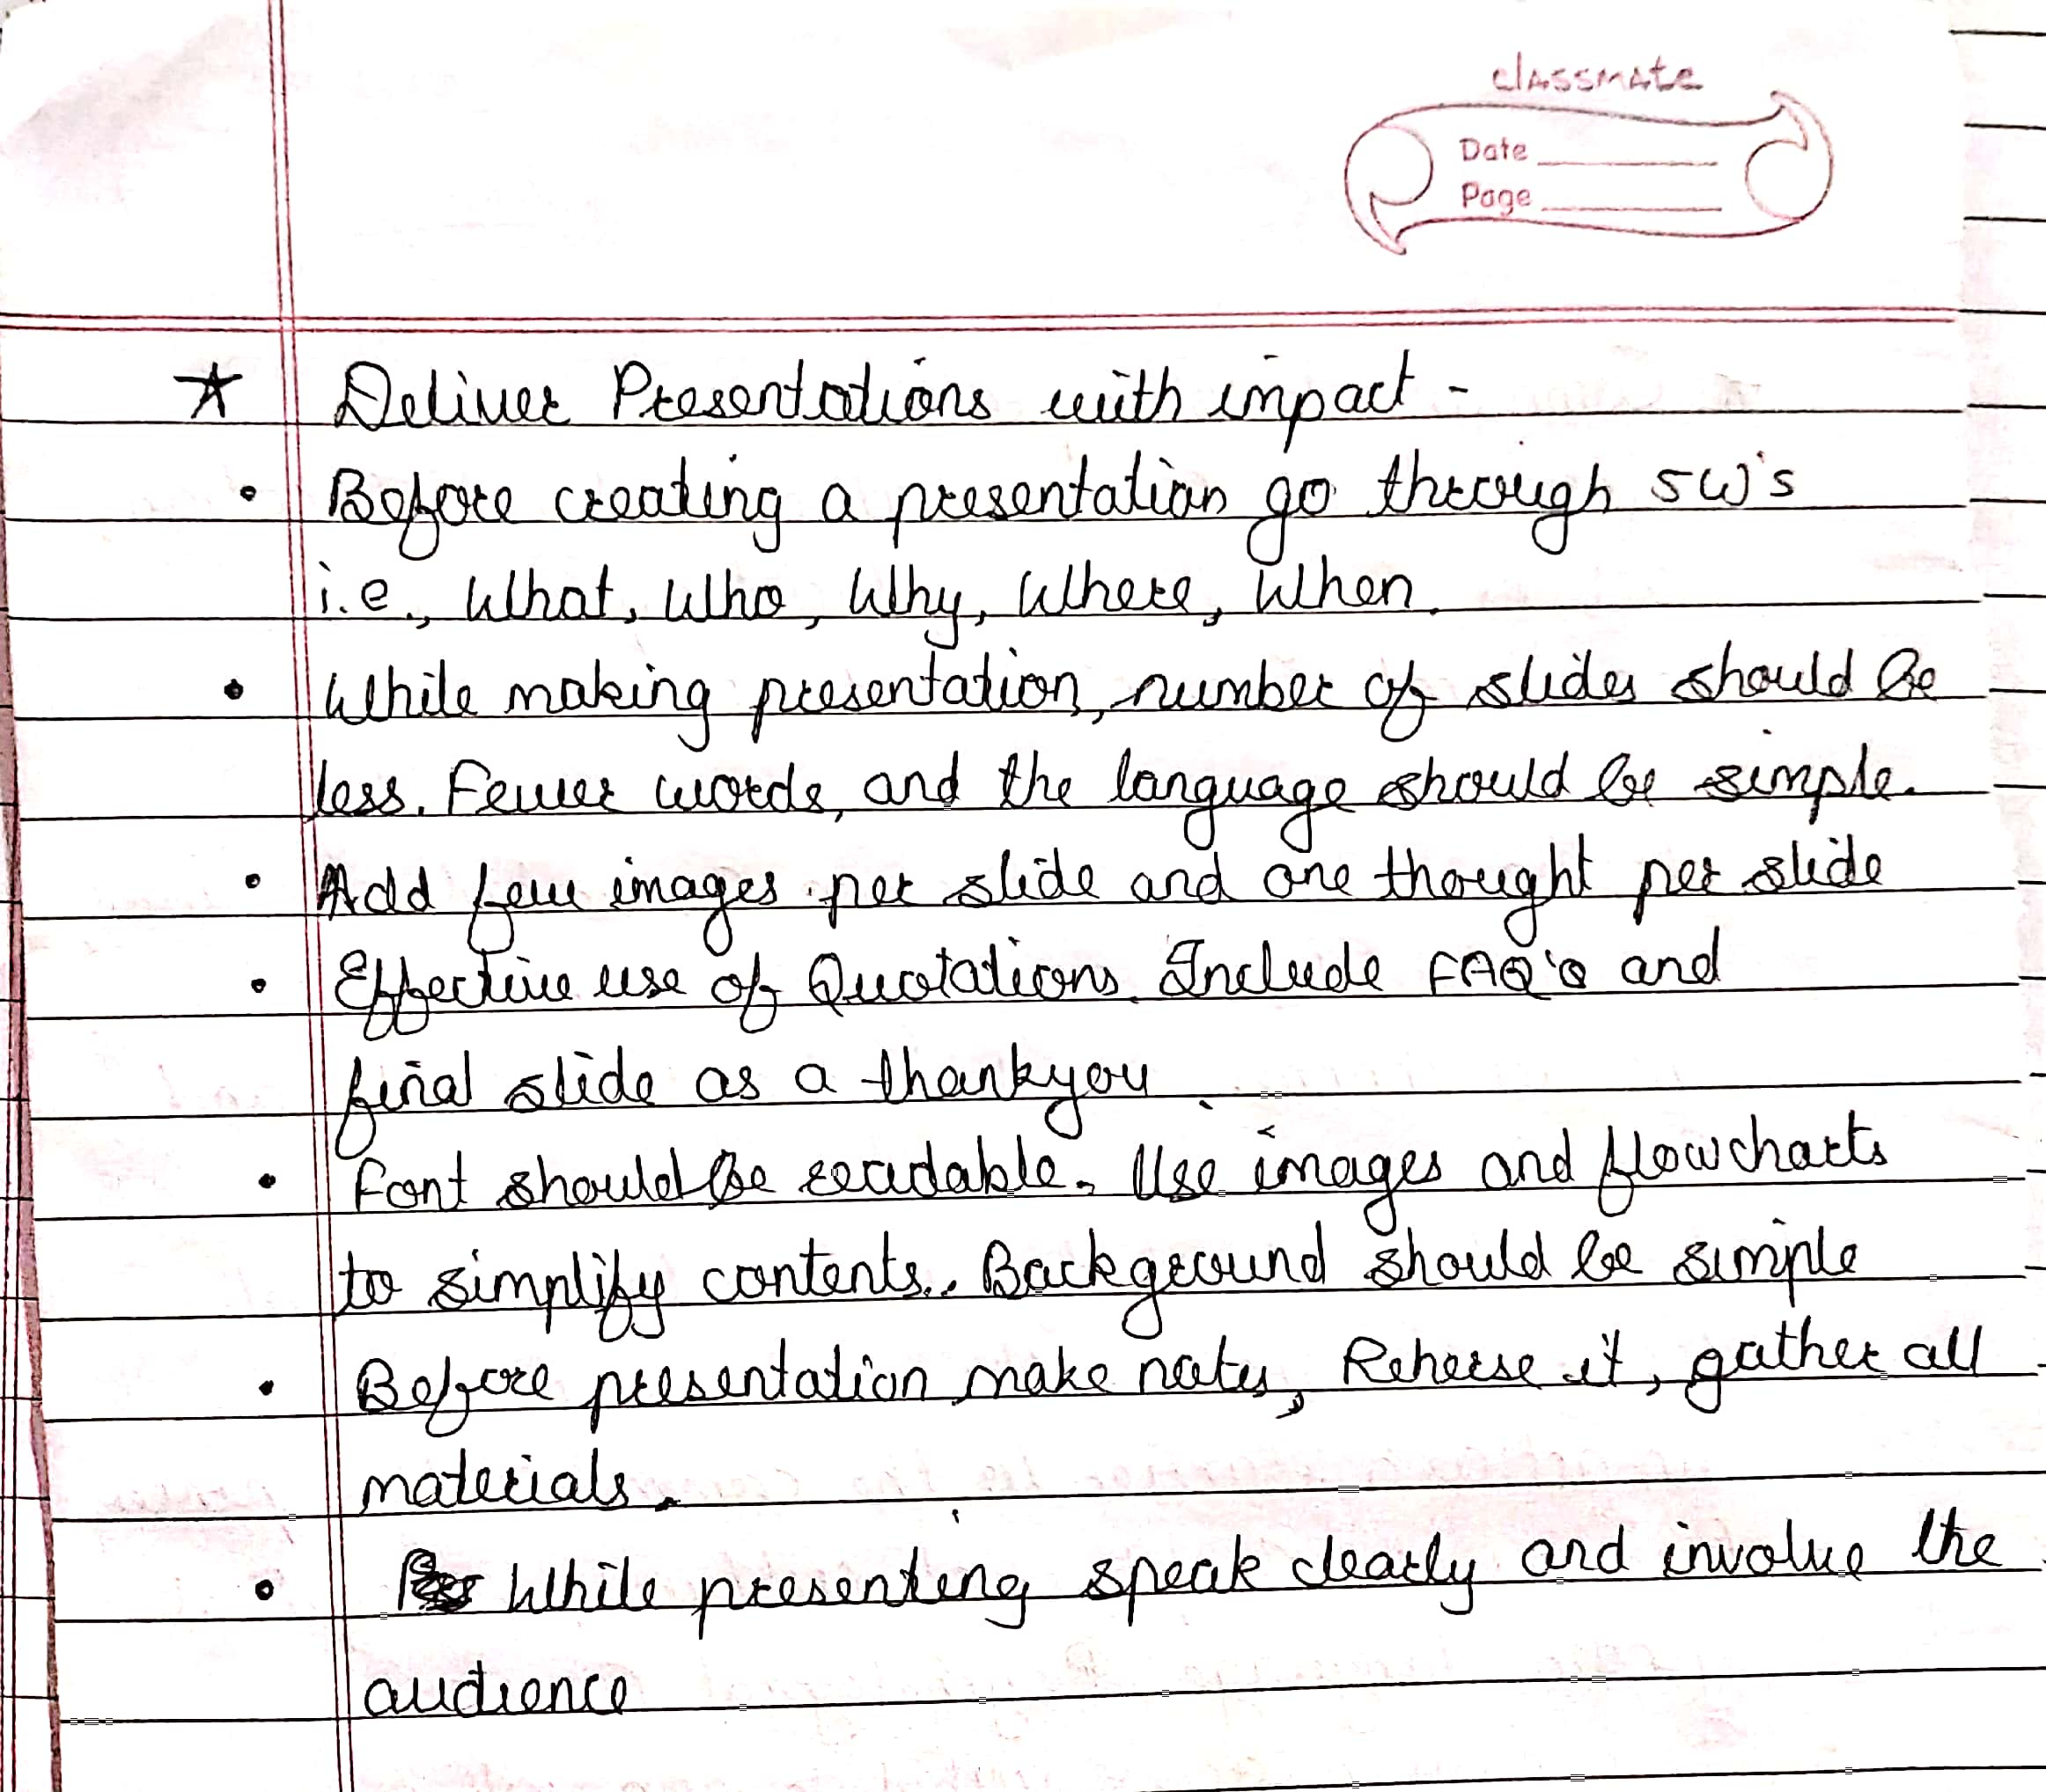 classmate
Date
Page
★ Deliver Presentations with impact -
• Before creating a presentation go through 5W's
i.e., What, Who, Why, Where, When.
• While making presentation, number of slides should be
less. Fewer words, and the language should be simple.
• Add few images per slide and one thought per slide
• Effective use of Quotations. Include FAQ's and
final slide as a thankyou
• Font should be readable. Use images and flowcharts
to simplify contents. Background should be simple
• Before presentation make notes, Reherse it, gather all
materials.
• While presenting speak clearly and involve the
audience